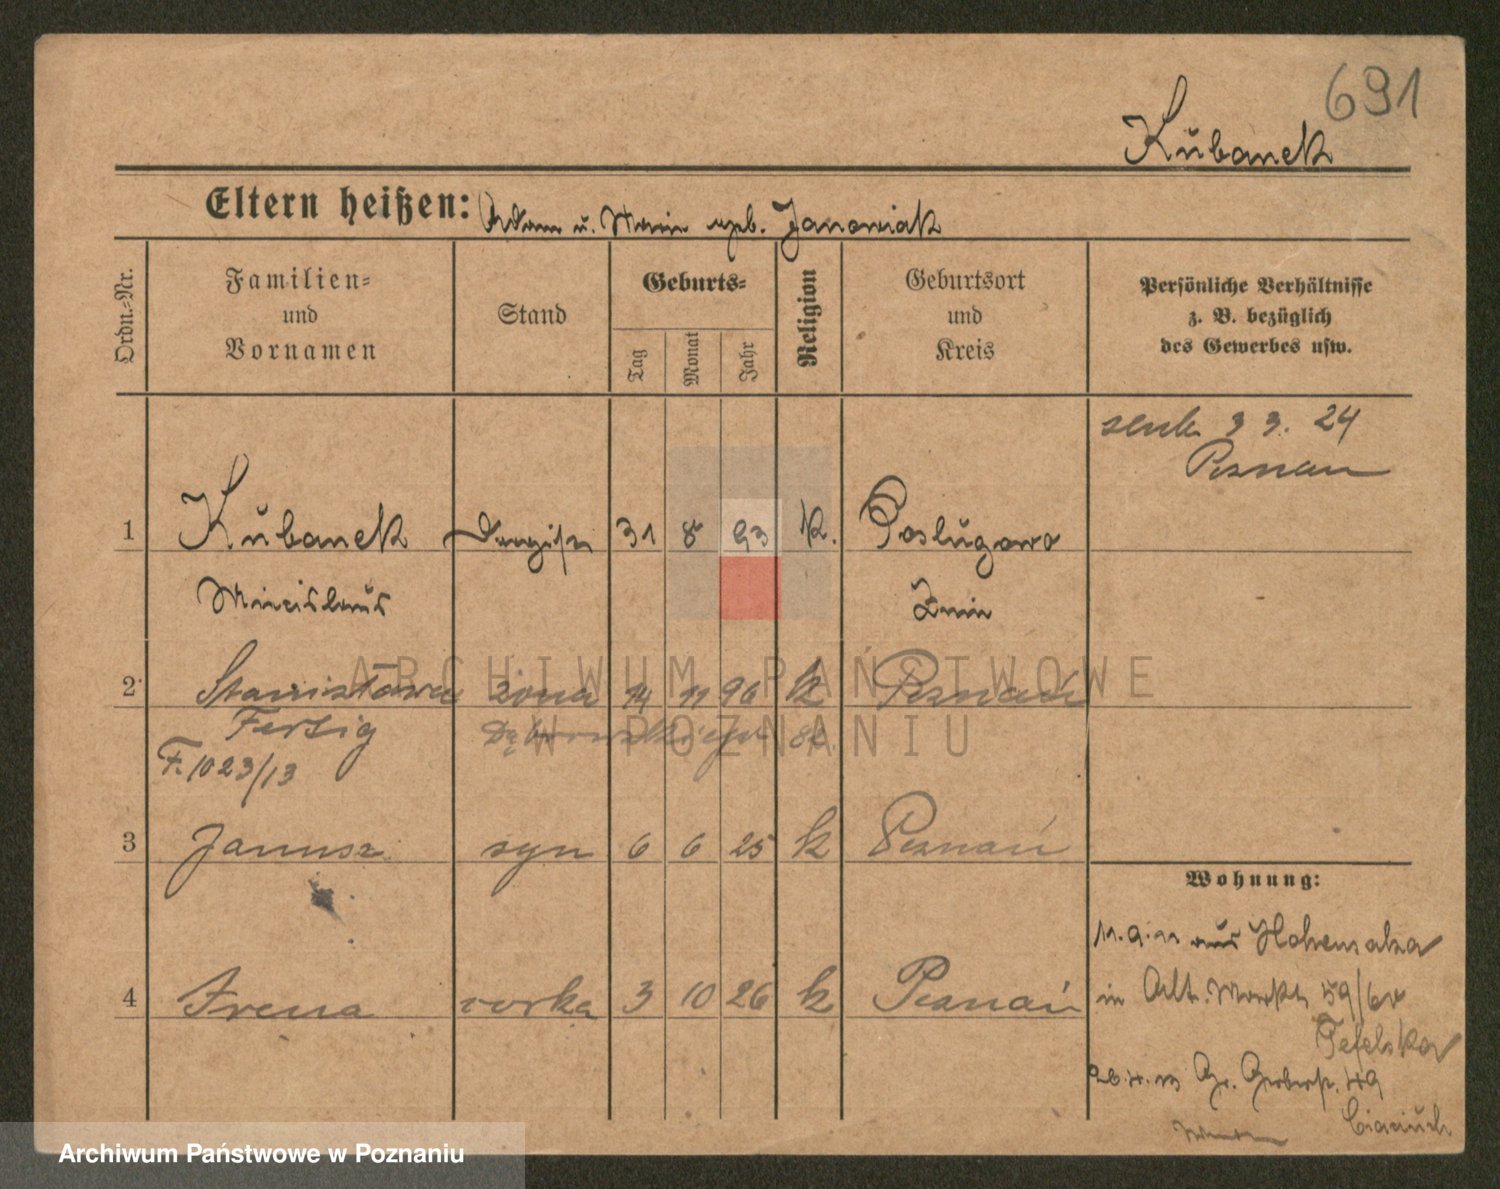 691
Kubanek
Eltern heißen: Adam u. Marie geb. Janowiak
Ordn.=Nr.
Familien= und Vornamen
Stand
Geburts=
Tag
Monat
Jahr
Religion
Geburtsort und Kreis
Persönliche Verhältnisse z. B. bezüglich des Gewerbes usw.
3 3. 24
Poznań
1 Kubanek 31 8 93 k. Posługowo
Miecislaus Znin
2 Stanisława żona 14 11 96 k Poznań
Fertig Dąbrowskiego
F. 1023/13
3 Janusz syn 6 6 25 k Poznań
Wohnung:
11.9.11 aus Hohensalza
4 Irena córka 3 10 26 k Poznań
in Alt. Markt 59/60
Gr. Gerberstr. 49
ARCHIWUM PAŃSTWOWE
W POZNANIU
Archiwum Państwowe w Poznaniu